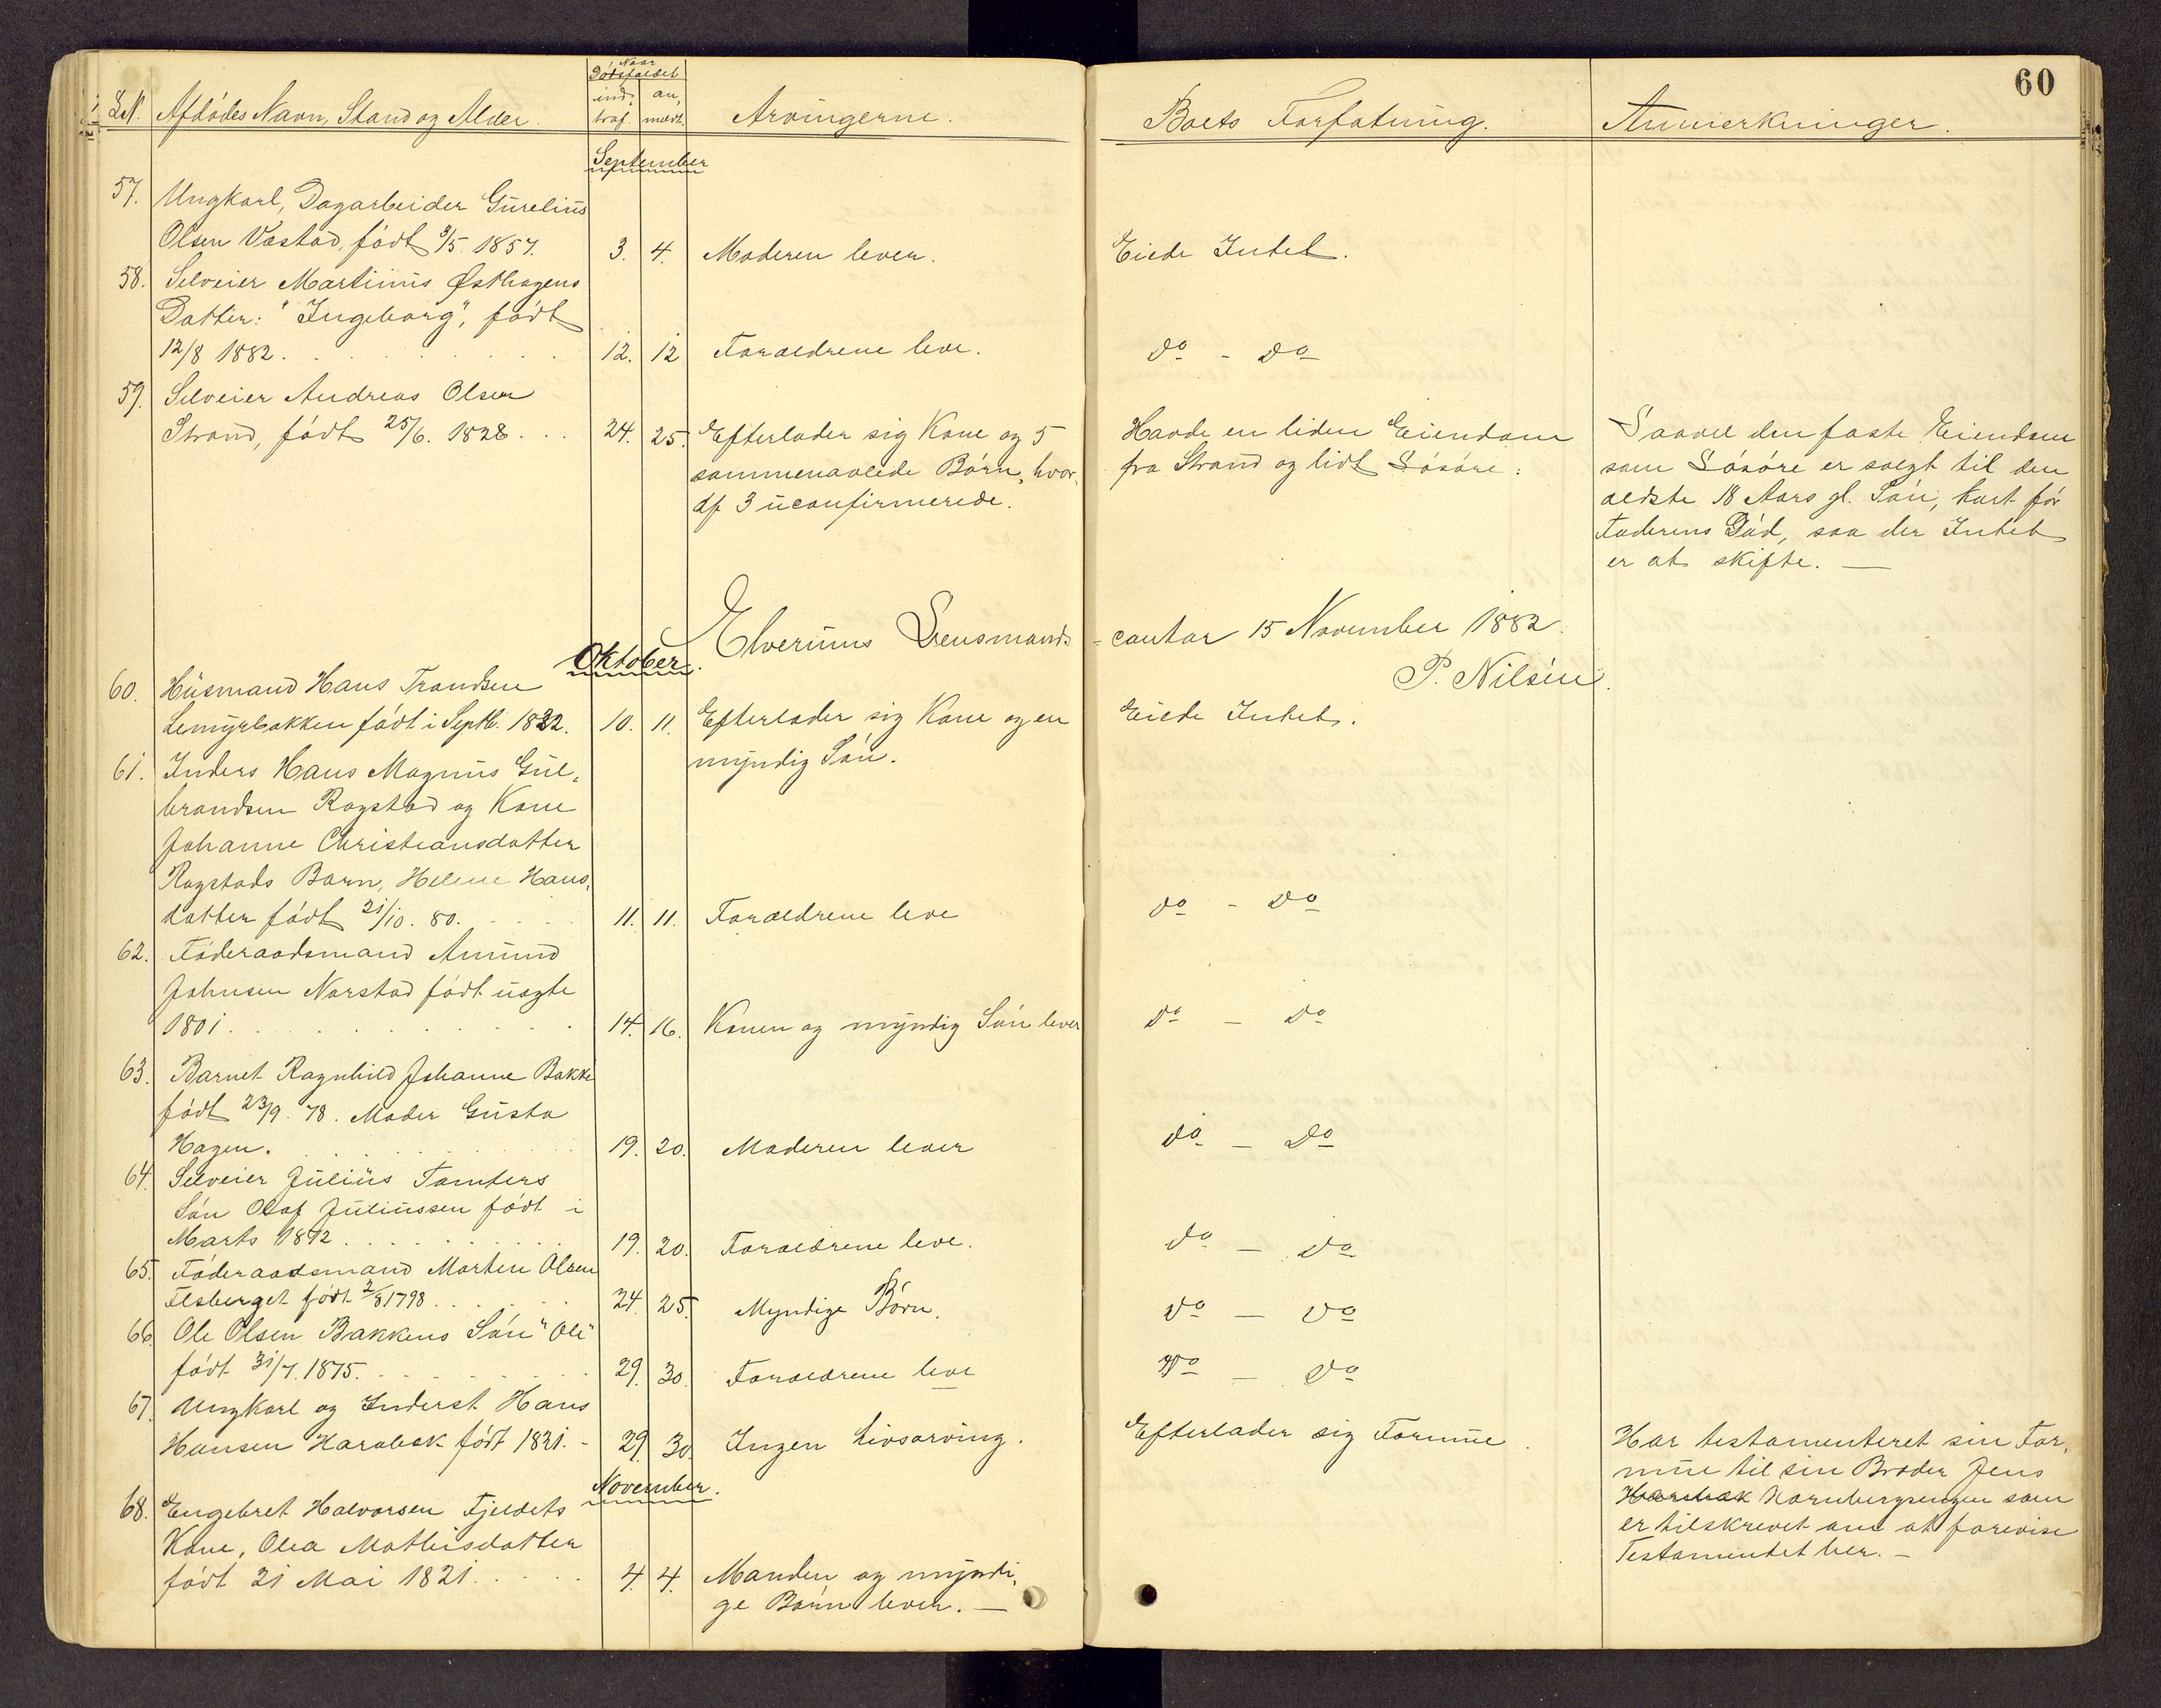 60
Naar
Dødsfaldet
L.N. Afdødes Navn, Stand og Alder. ind- traf. an- meldt. Arvingerne. Boets Forfatning. Anmerkninger.
September
57. Ungkarl, Dagarbeider Gurelius
Olsen Vastad, født 3/5. 1857. 3. 4. Moderen lever. Eiede Intet.
58. Selveier Martinus Østhagens
Datter: "Ingeborg", født
12/8 1882. 12. 12 Forældrene leve. do - do
59. Selveier Andreas Olsen
Strand, født 25/6. 1828. 24. 25. Efterlader sig Kone og 5 Havde en liden Eiendom Saavel den faste Eiendom
sammenavlede Børn, hvor- fra Strand og lidt Løsøre. som Løsøre er solgt til den
af 3 uconfirmerede. ældste 18 Aars gl. Søn, kort før
Faderens Død, saa der Intet
er at skifte. —
Elverums Lensmands- contor 15 November 1882.
P. Nilsen.
Oktober.
60. Husmand Hans Trondsen
Lemyrbakken født i Septb. 1822. 10. 11. Efterlader sig Kone og en Eiede Intet.
myndig Søn.
61. Inders Hans Magnus Gul-
brandsen Rogstad og Kone
Johanne Christiansdatter
Rogstads Barn, Helene Hans-
datter født 21/10. 80. 11. 11. Forældrene leve do - do
62. Føderaadsmand Amund
Johnsen Norstad født uægte
1801. 14. 16. Konen og myndig Søn lever do - do
63. Barnet Ragnhild Johanne Bakke
født 23/9. 78. Moder Gusta
Hagen. 19. 20. Moderen lever do - do
64. Selveier Julius Tomters
Søn Olaf Juliussen født i
Marts 1872. 19. 20. Forældrene leve. do - do
65. Føderaadsmand Morten Olsen
Flesberget født 2/8 1798. 24. 25. Myndige Børn. do - do
66. Ole Olsen Bakkens Søn "Ole"
født 31/7. 1875. 29. 30. Forældrene leve do - do
67. Ungkarl og Inderst Hans
Hansen Harabæk født 1821. - 29. 30. Ingen Livsarving. Efterlader sig Formue. Har testamenteret sin For-
mue til sin Broder Jens
November. Harabæk Hornbergsengen som
68. Engebret Halvorsen Fjeldets er tilskrevet om at forevise
Kone, Olea Mathisdatter Testamentet her. —
født 21 Mai 1821. 4. 4. Manden og myndi-
ge Børn lever. —